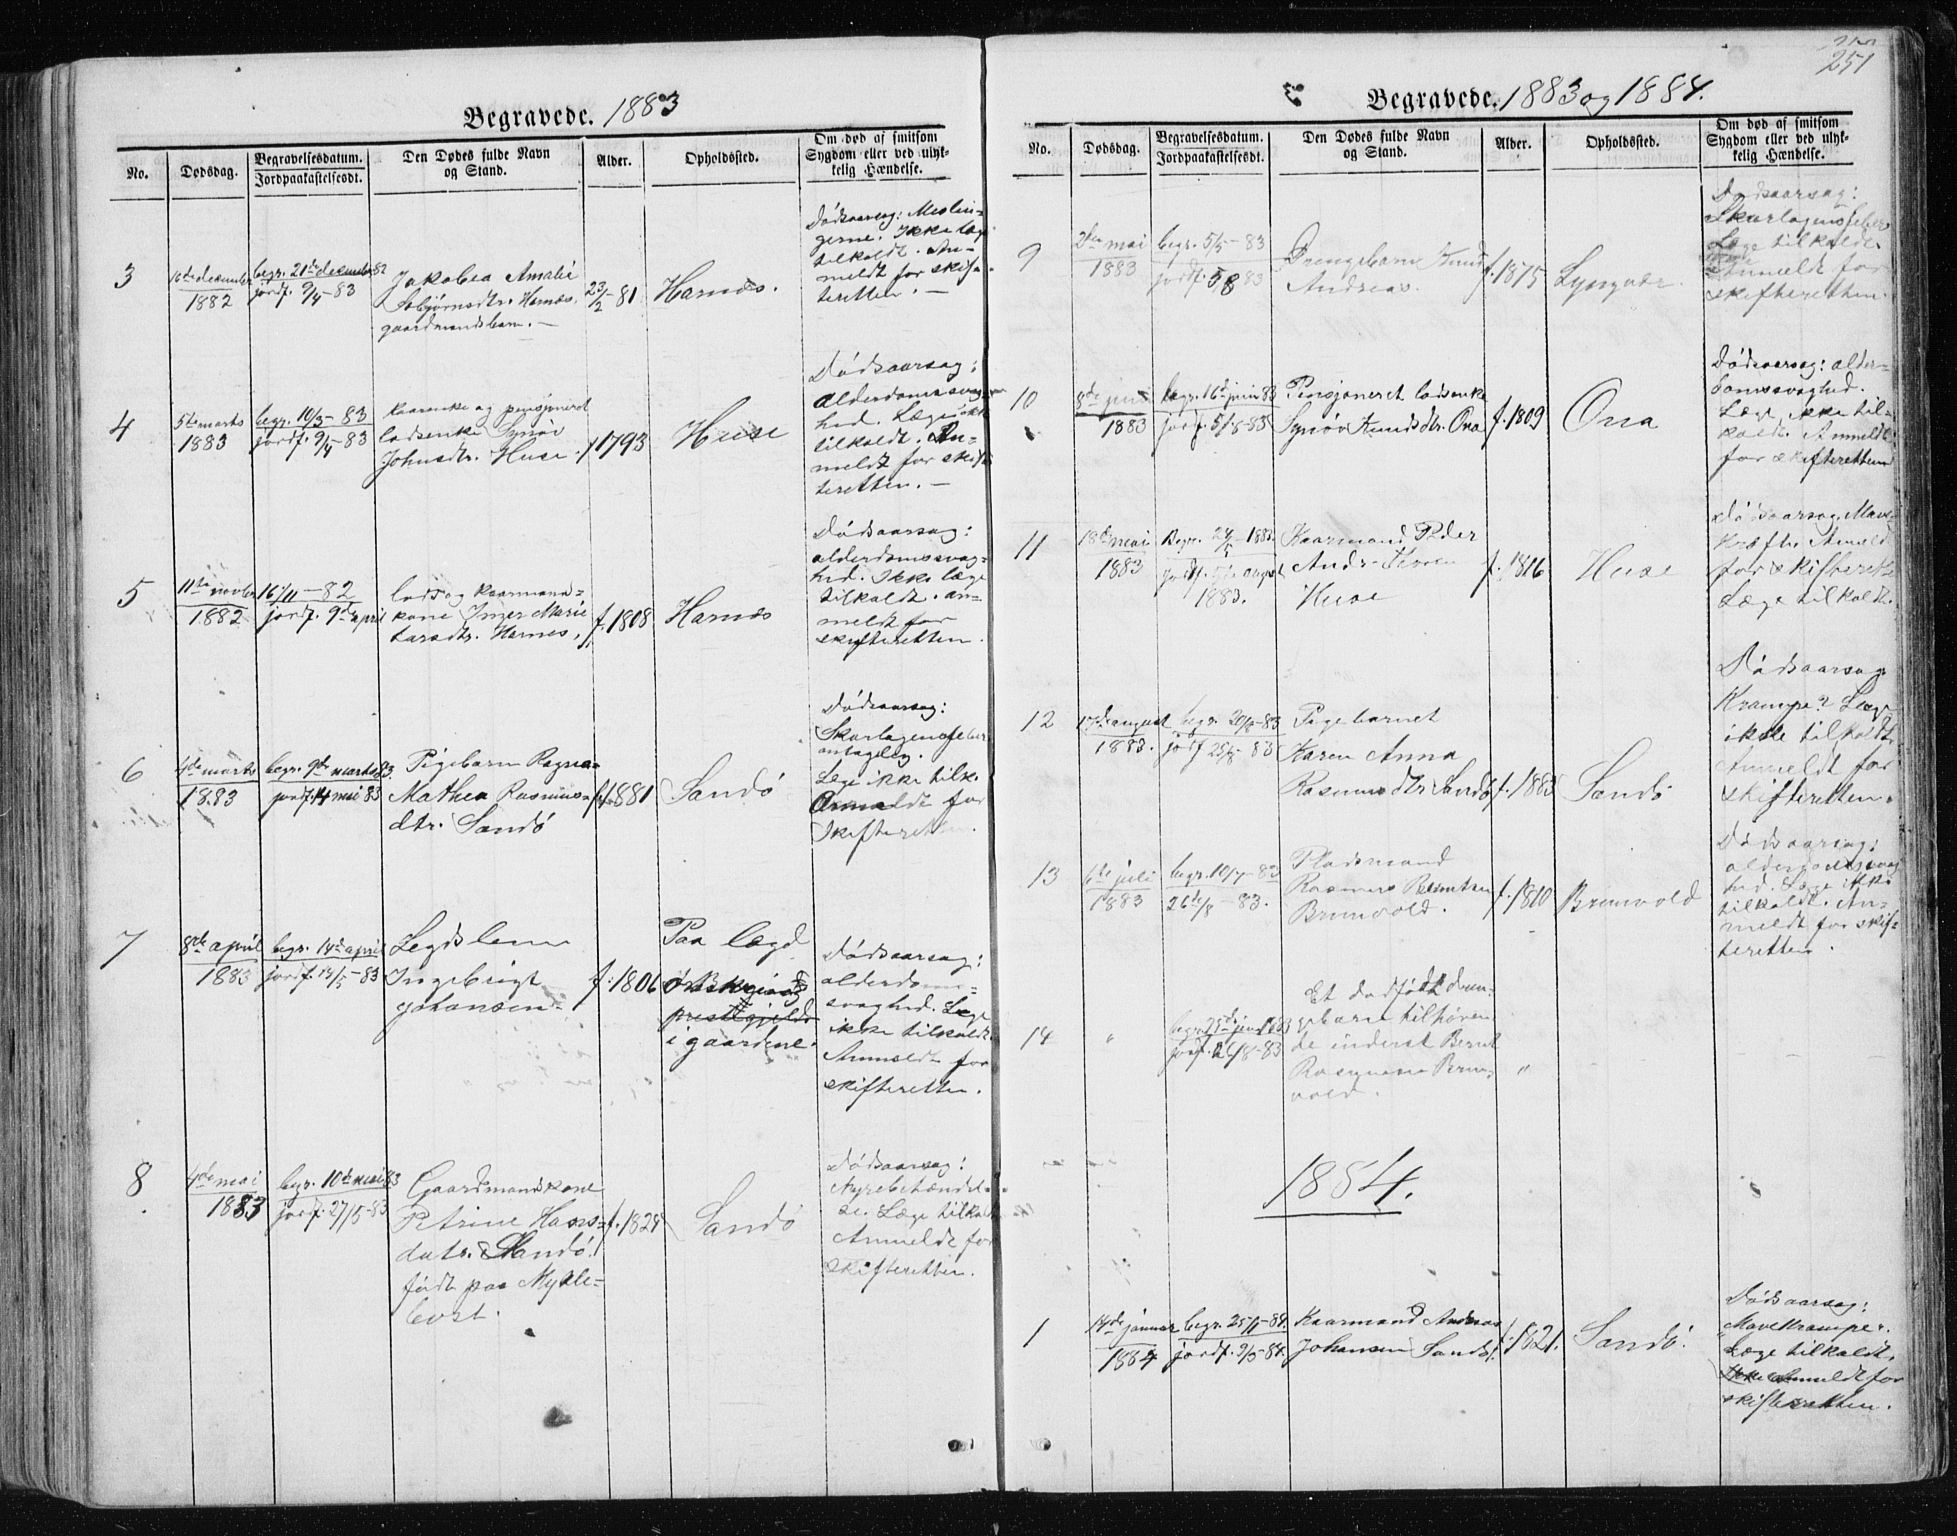 251
Begravede. 1883
No.
Dødsdag.
Begravelsesdatum.
Jordpaakastelsesdt.
Den Dødes fulde Navn
og Stand.
Alder.
Opholdssted.
Om død af smitsom
Sygdom eller ved ulyk-
kelig Hændelse.
3
16de december
1882
begr. 21de december 82
jordf. 9/4-83
Jakobea Amalie
Harnæs.
gaardmandsbarn.-
23/2-81
Harnæs.
Dødsaarsag: Meslin-
gerne. Ikke læge
tilkaldt. An-
meldt for skif-
teretten.-
4
5te marts
1883
begr. 10/3-83
jordf. 9/4-83
kaarenke og pensjoneret
lodsenke Synøv
Johnsdtr. Huse.
f 1793
Huse
Dødsaarsag:
alderdomssvag-
hed. Læge ikke
tilkaldt. An-
meldt for skif-
teretten.-
5
11te novber
1882
16/11-82
jordf. 9de april
lods og kaarmand-
kone Inger Marie
Larsdtr. Harnes,
f. 1808
Harnæs
Dødsaarsag:
alderdomssvag-
hed. Ikke læge
tilkaldt. an-
meldt for
skifteretten.
6
4de marts
1883
begr. 9de marts 83.
jordf. 14 mai 83
Pigebarn Ragna
Mathea Rasmus-
dtr. Sandö
f. 1881
Sandö
Dødsaarsag:
Skarlagensfeber
antagelig.
Læge ikke tilk.
Anmeldt for
Skifteretten.
7
8de april
1883
begr. 14de april
jordf. 14/5-83
Legdslem
Ingebrigt
Johansen-
f. 1806
Paa lægd
i gaardene.
Dødsaarsag:
alderdoms-
svaghed. Læge
ikke tilkaldt.
Anmeldt for
skifteretten.
8
4de mai
1883
begr. 10de mai 83
jordf. 27/5-83
Gaardmandskone
Petrine Hans-
datr. Sandö.
født paa Mykle-
bost.
Sandö
Dødsaarsag:
Nyrebetændel-
se. Læge tilkaldt
Anmeldt for
skifteretten.
Begravede. 1883 og 1884.
No.
Dødsdag.
Begravelsesdatum.
Jordpaakastelsesdt.
Den Dødes fulde Navn
og Stand.
Alder.
Opholdssted.
Om død af smitsom
Sygdom eller ved ulyk-
kelig Hændelse.
9
mai
1883
begr. 5/5-83
jordf. 5/8 83
Drengebarn Knud
Andreas.
f. 1875
Lyngvær.
Dødsaarsag:
Skarlagensfeber
Læge tilkaldt.
Anmeldt for
skifteretten.
10
8de juni
1883
begr. 16de juni 83
jordf. 5/8-83
Pensjoneret lodsenke
Synöv Knudsdtr. Ona
f. 1809
Ona
Dødsaarsag: alder-
domssvaghed.
Læge ikke til-
kaldt. Anmeldt
for skifteretten
11
18de mai
1883
Begr. 24/5-1883.
jordf. 5te august
1883.
Kaarmand Peder
Huse
f. 1816
Huse
Dødsaarsag. Mave-
kræft. Anmeldt
for skifteretten
Læge tilkaldt.
12
17de august
1883.
begr. 20/8-83
jordf 25/8-83
Pigebarnet
Karen Anna
Rasmusdtr Sandö
f. 1883
Sandö
Dødsaarsag
Krampe? Læge
ikke tilkaldt.
Anmeldt for
skifteretten.
13
6te juli
1883
begr. 10/7-83
26de/8-83.
Pladsmand
Rasmus Berntsen
Brunvold.
f. 1810
Brunvold
Dødsaarsag:
alderdomssvag
hed. Læge ikke
tilkaldt. An-
meldt for skif-
teretten.
14
"
begr. 25de juni 1883
jordf. 26/8-83
Et dødfødt dren-
gebarn tilhøren-
de inderst Bernt
Rasmussen Brun-
vold.
"
1884.
1
14de januar
1884
begr. 25/1-84.
jordf. 9/5-84.
Kaarmand Andreas
Johansen Sandö.
f. 1821.
Sandö.
Dødsaarsag:
Mavekramper.
Læge tilkaldt.
Ikke anmeldt for
skifteretten.